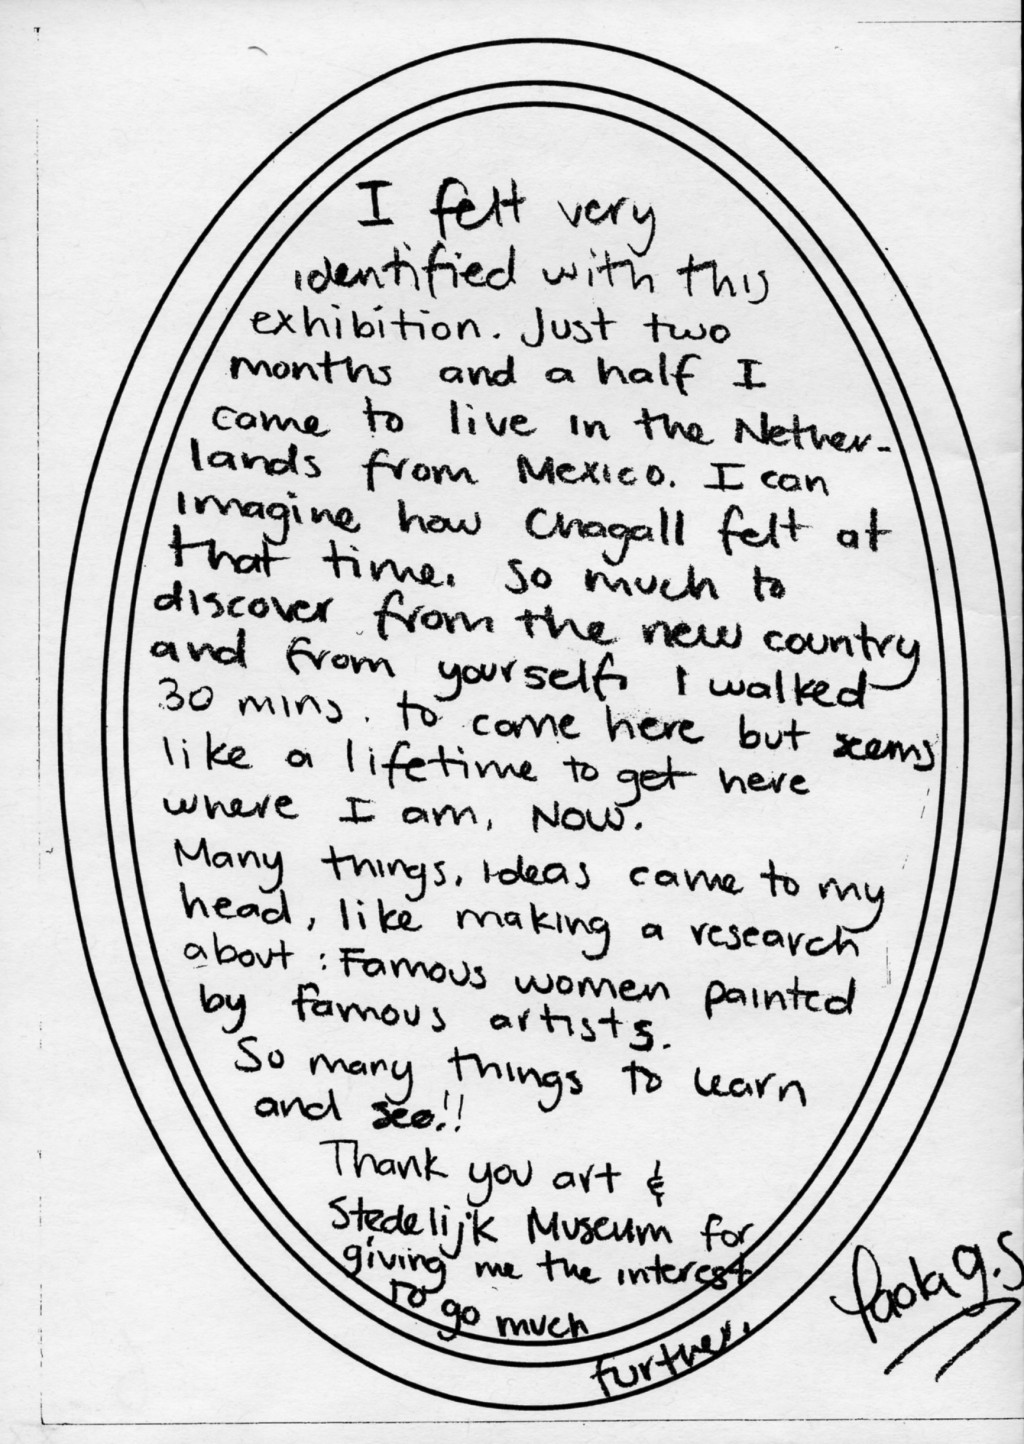 I felt very
identified with this
exhibition. Just two
months and a half I
came to live in the Nether-
lands from Mexico. I can
imagine how Chagall felt at
that time. So much to
discover from the new country
and from yourself. I walked
30 mins. to come here but seems
like a lifetime to get here
where I am, Now.
Many things, ideas came to my
head, like making a research
about : Famous women painted
by famous artists.
So many things to learn
and see!!
Thank you art &
Stedelijk Museum for
giving me the interest
to go much
further.
Paola G.S